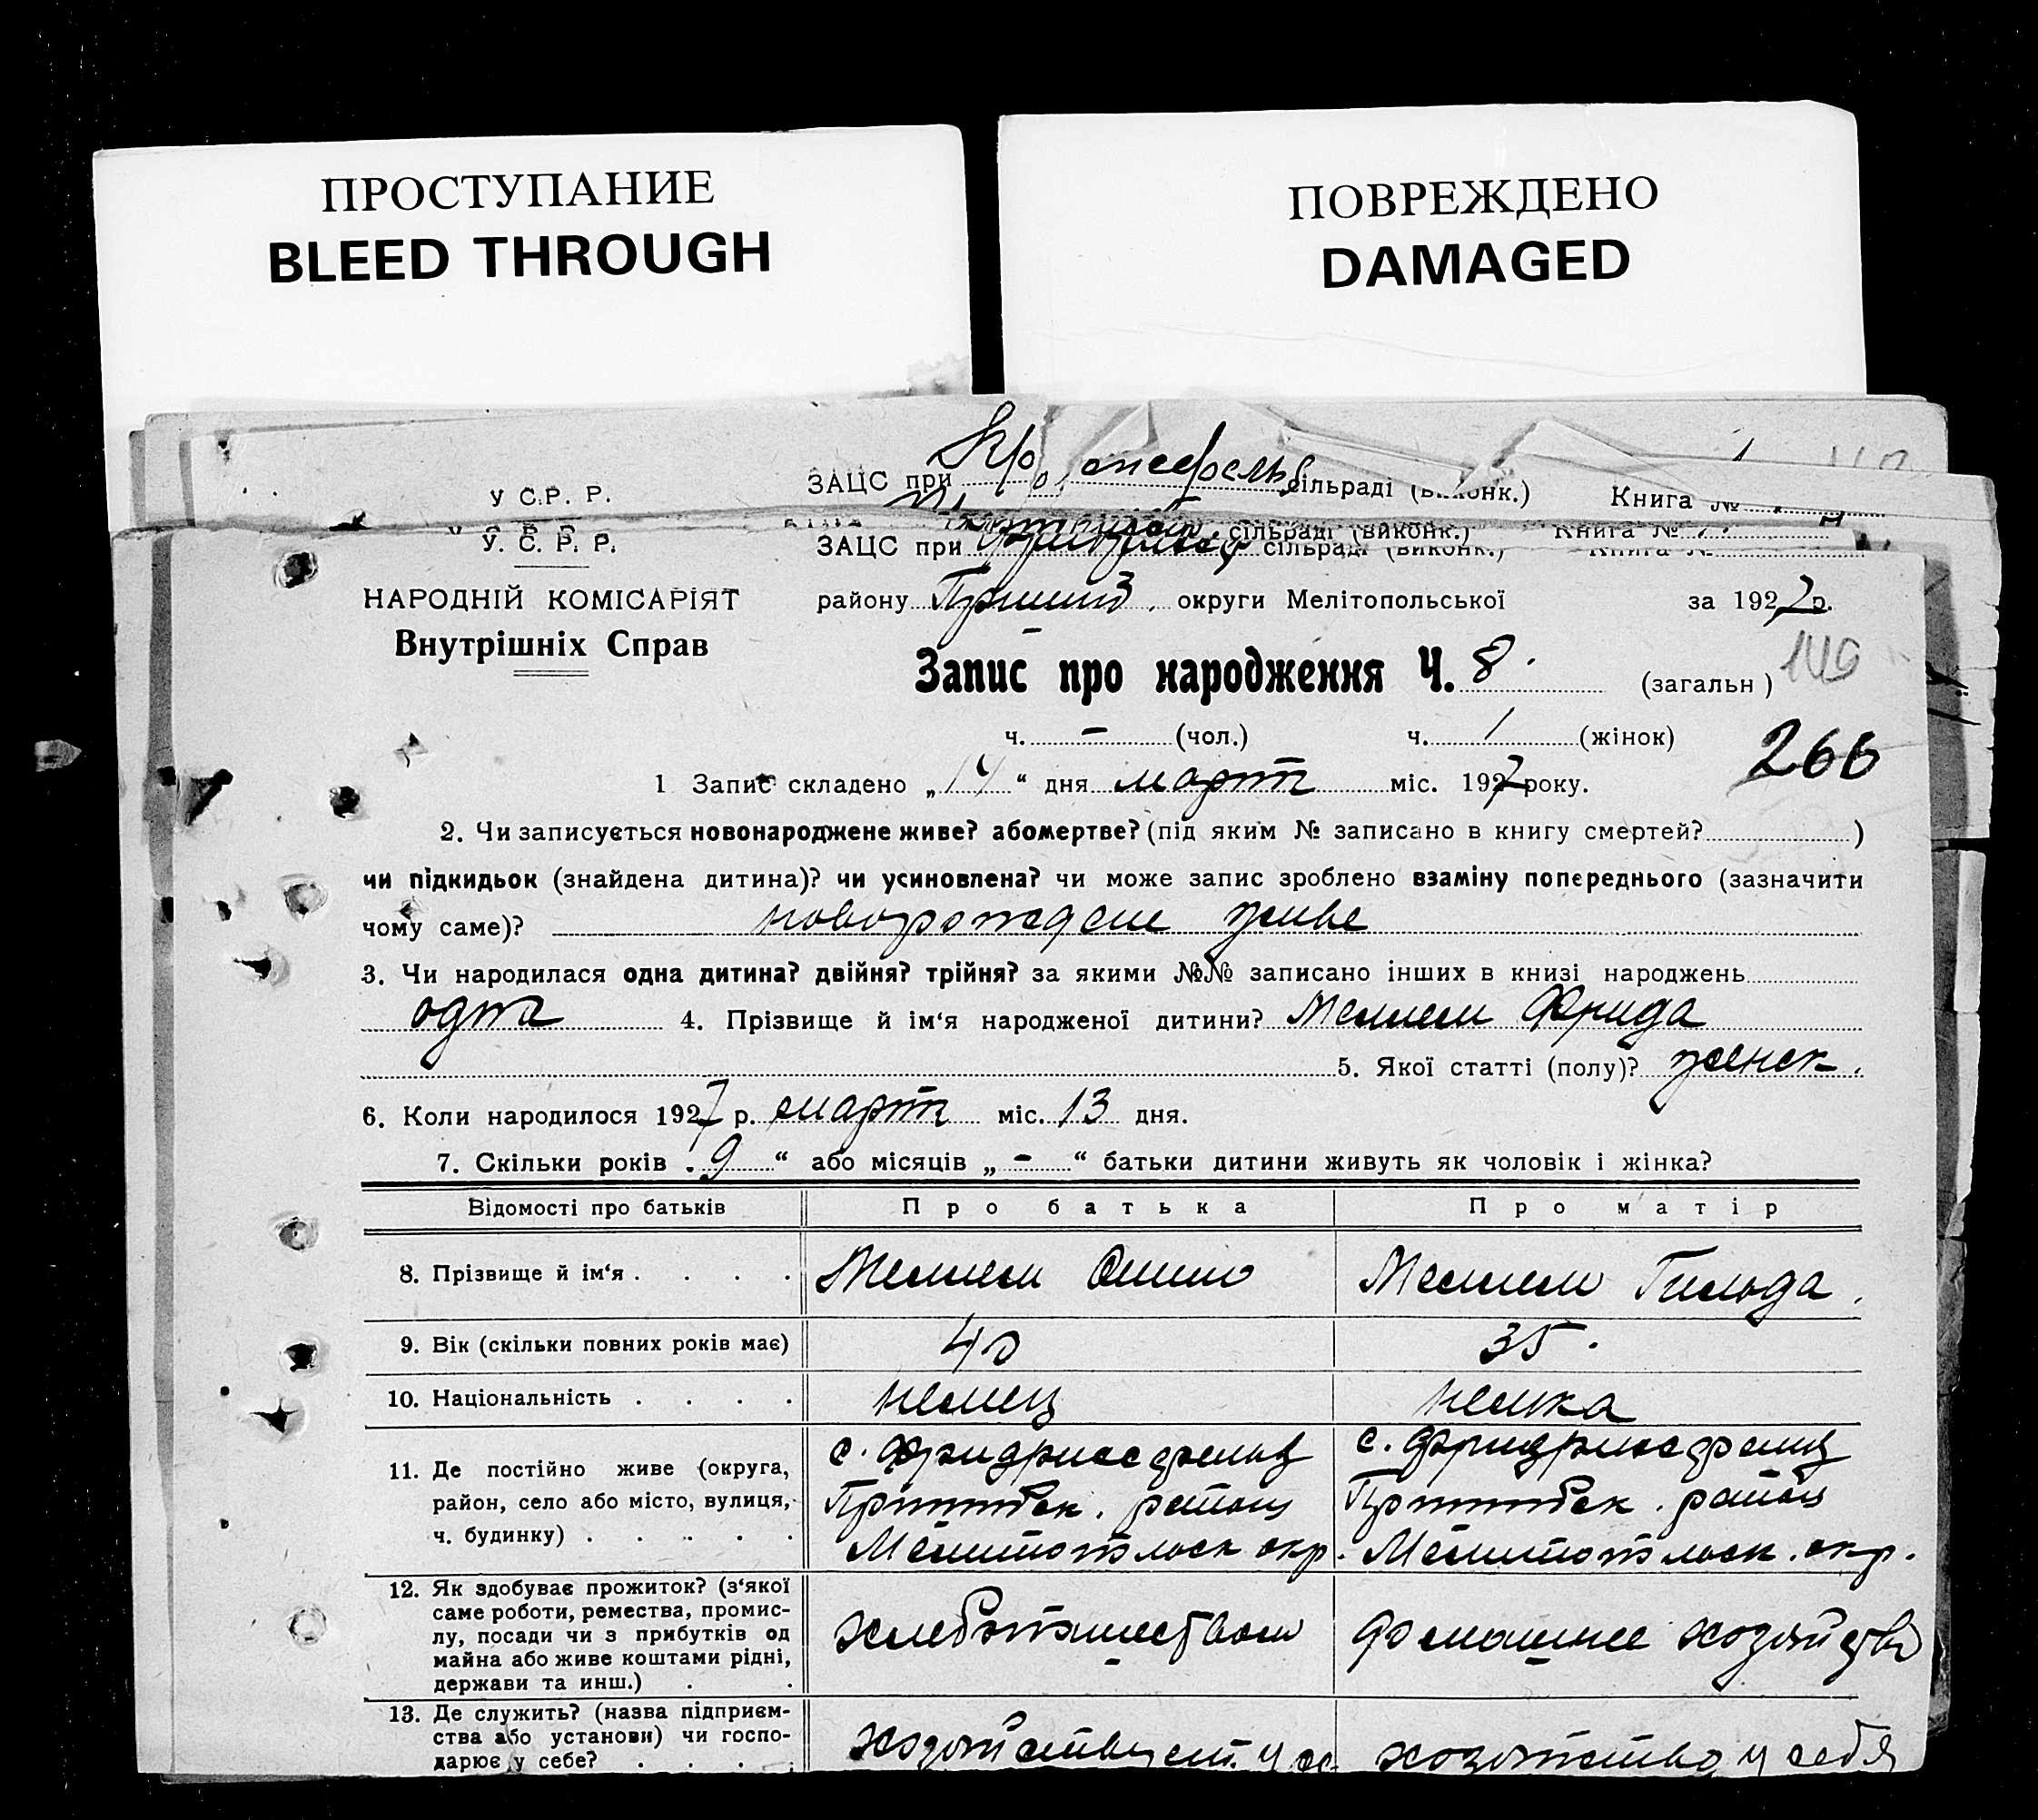 ПРОСТУПАНИЕ
BLEED THROUGH
ПОВРЕЖДЕНО
DAMAGED
У С.Р. Р.
ЗАЦС при сільраді (виконк.) Книга №
сільраді (виконк.) Книга №
У. С. Р. Р. ЗАЦС при сільраді (виконк.) Книга №
НАРОДНІЙ КОМІСАРІЯТ району округи Мелітопольської за 1927 р.
Внутрішніх Справ
Запис про народження Ч. 8. (загальн) 140
ч. – (чол.) ч. 1 (жінок) 266
1 Запис складено „14“ дня март міс. 1927 року.
2. Чи записується новонароджене живе? або мертве? (під яким № записано в книгу смертей? )
чи підкидьок (знайдена дитина)? чи усиновлена? чи може запис зроблено взаміну попереднього (зазначити
чому саме)? живе
3. Чи народилася одна дитина? двійня? трійня? за якими №№ записано інших в книзі народжень
одна 4. Прізвище й ім‘я народженої дитини? Фрида
5. Якої статті (полу)? женск.
6. Коли народилося 1927 р. март міс. 13 дня.
7. Скільки років „9“ або місяців „–“ батьки дитини живуть як чоловік і жінка?
Відомості про батьків Про батька Про матір
8. Прізвище й ім‘я . . . . Гильда.
9. Вік (скільки повних років має) 40 35.
10. Національність . . . . немец немка
11. Де постійно живе (округа, с. с.
район, село або місто, вулиця, Пришибск. район Пришибск. район
ч. будинку) . . . . . Мелитопольск окр. Мелитопольск. окр.
12. Як здобуває прожиток? (з‘якої
саме роботи, ремества, промис-
лу, посади чи з прибутків од хлебопашеством домашнее хозяйство
майна або живе коштами рідні,
держави та инш.) . .
13. Де служить? (назва підприєм-
ства або установи) чи госпо- хозяйствует у се- хозяйство у себя
дарює у себе? . . . .